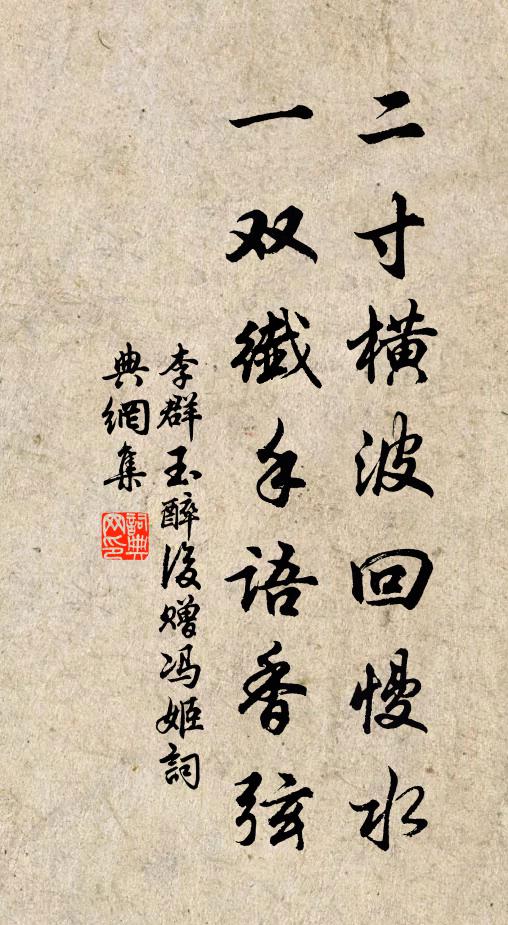 二寸橫波回慢水
一双纖手語香弦
李群玉醉後赠冯姬詞
典網集
詞典网印